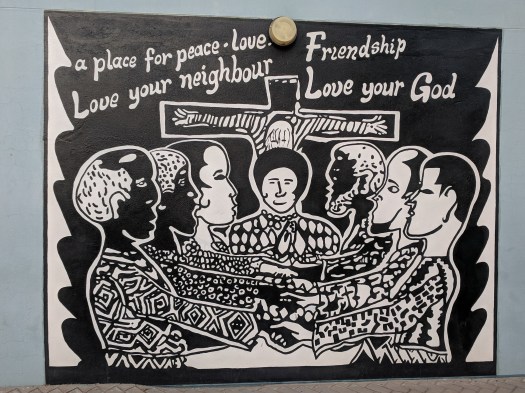 a place for peace · love · Friendship
Love your neighbour Love your God